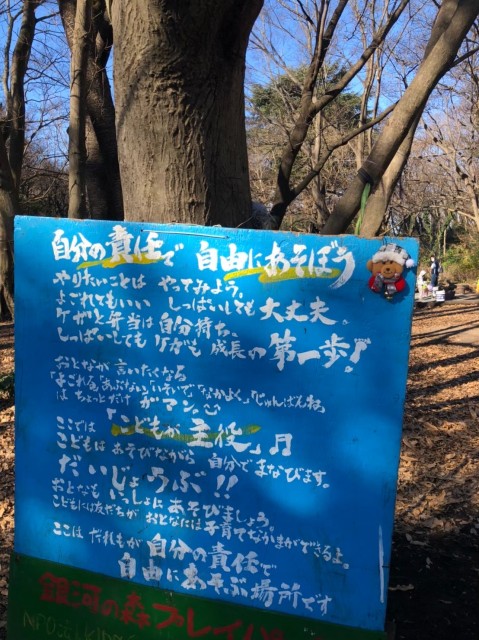 自分の責任で 自由にあそぼう
やりたいことは やってみよう。
よごれてもいい しっぱいしても 大丈夫。
ケガと弁当は自分持ち、
しっぱいしても ケガも 成長の 第一歩!
おとなが 言いたくなる
「よごれる」「あぶない」「いそいで」「なかよく」「じゅんばんね」
は ちょっとだけ ガマン。
ここでは 「こどもが 主役」♫
こどもは あそびながら 自分で まなびます。
だいじょうぶ!!
おとなも いっしょに あそびましょう。
こどもには友だちが おとなには子育てなかまができるよ。
ここは だれもが 自分の責任で
自由にあそぶ場所です
銀河の森プレイパ
NPO